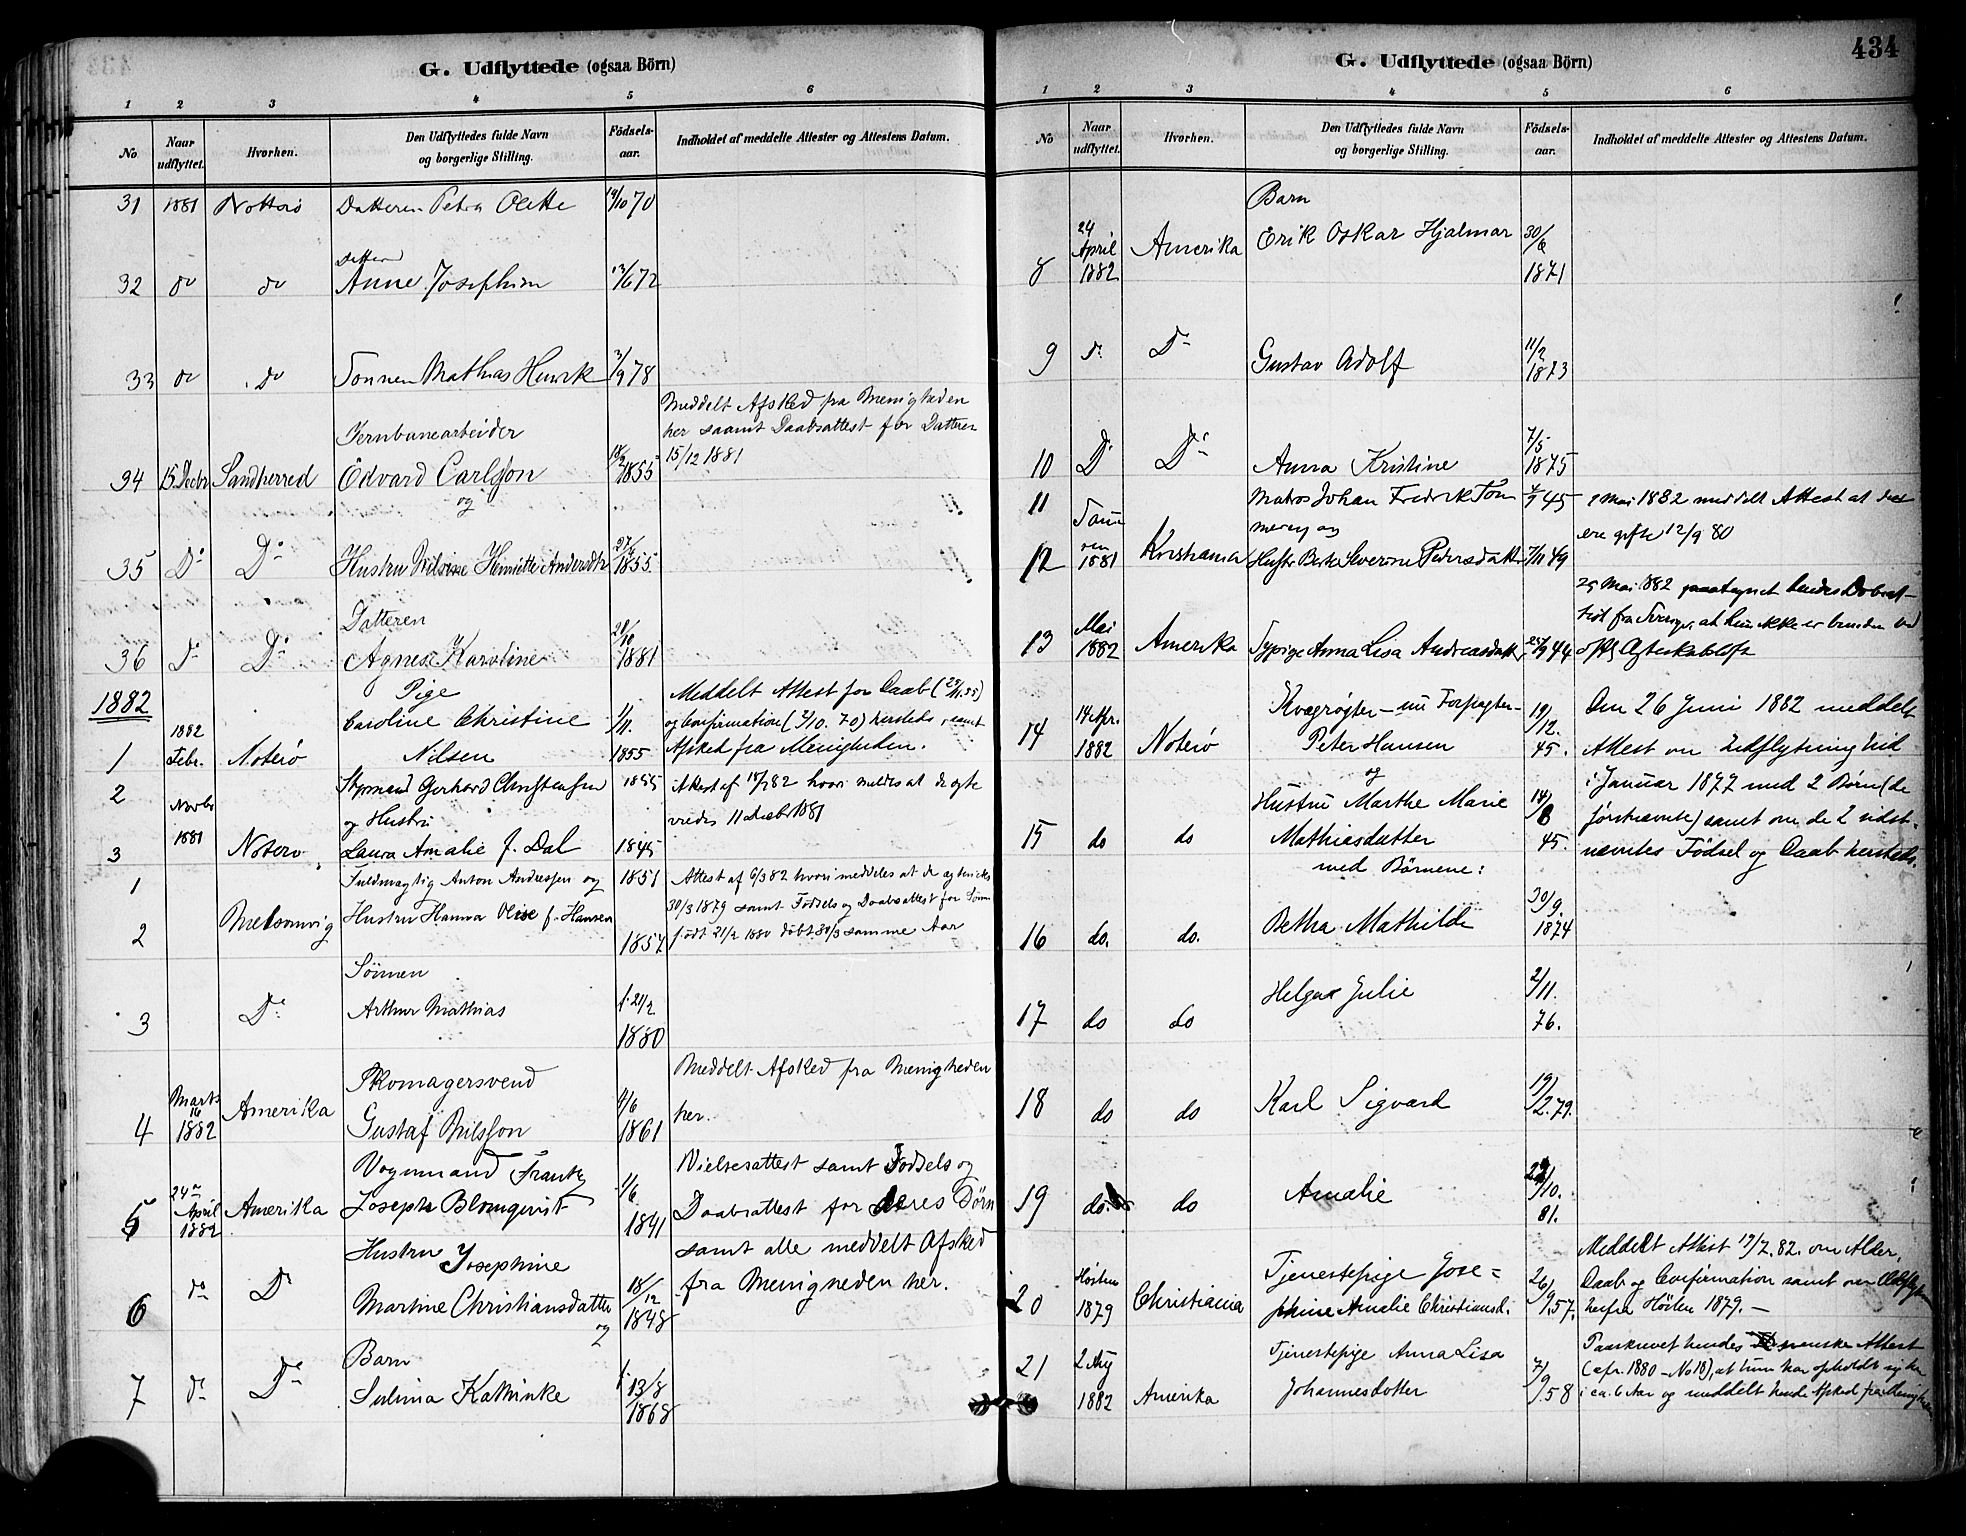 G. Udflyttede (ogsaa Börn)
1 2 3 4 5 6
No
Naar udflyttet.
Hvorhen.
Den Udflyttedes fulde Navn
og borgerlige Stilling.
Födsels-
aar.
Indholdet af meddelte Attester og Attestens Datum.
31 1881 Notterö Datteren Petra Olette 19/10 70
Datteren
32 do do Anne Josephine 13/6 72
33 do do Sönnen Mathias Henrik 3/9 78
Jernbanearbeider
34 15 Decbr Sandherred Edvard Carlsson 1855
og
Meddelt Afsked fra Menigheden
her saamt Daabsattest for Datteren
15/12 1881
35 Do Do Hustru Nilsine Henriette Andersdtr 27/4 1855
Datteren
36 Do Do Agnes Karoline 28/10 1881
1882
Pige
1 1882 Febr. Noterö Caroline Christine
Nilsen 1/11. 1855
Meddelt Attest for Daab (29/11.55)
og Confirmation (2/10. 70) hersteds, samt
Afsked fra Menigheden.
2 Novbr Styrmand Gerhard Christensen 1855
og Hustru
3 1881 Noterö Laura Amalie f. Dal 1845
Attest af 18/2 82 hvori meldes at de ægte
viedes 11 Decbr 1881
1 Fuldmægtig Anton Andressen og 1851
2 Melsomvig Hustru Hanna Olise f. Hansen 1857
Attest af 6/3 82 hvori meddeles at de ægteviedes
30/3 1879 samt Fødsels og Daabsattest for Sønnen
født 21/2 1880 døbt 30/3 samme Aar
Sönnen
3 Do Arthur Mathias f. 21/2 1880
Skomagersvend
4 Marts 16 1882 Amerika Gustaf Nilsson 4/6 1861
Meddelt Afsked fra Menigheden
her.
Vognmand Frantz
5 24de April 1882 Amerika Joseph Blomqvist 1/6 1841
Vielsesattest samt Fødsels og
Daabsattest for deres Børn
samt alle meddelt Afsked
fra Menigheden her.
Hustru Josephine
6 do Do Martine Christiansdatter 18/12 1848
og
Barn
7 do Do Sulima Kathinke f. 13/8 1868
434
G. Udflyttede (ogsaa Börn)
1 2 3 4 5 6
No
Naar udflyttet.
Hvorhen.
Den Udflyttedes fulde Navn
og borgerlige Stilling.
Födsels-
aar.
Indholdet af meddelte Attester og Attestens Datum.
Barn
8 24 April 1882 Amerika Erik Oskar Hjalmar 30/6 1871
9 Do Do Gustav Adolf 11/2 1873
10 Do Do Anna Kristine 7/5 1875
11 Matros Johan Fredrik Tom
merey og 45
9 Mai 1882 meddelt Attest at de
ere gifte 12/9 80
12 1881 Kristiania Hustr Berthe Severine Pedersdatter 7/11 49
13 Mai 1882 Amerika Sypige Anna Lisa Andreasdatter 25/9 44
25 Mai 1882 paategnet hendes Dobsat-
test fra Sverige, at hun ikke er bunden ved
Ægteskabsløfte
14 14 Apr. 1882 Noterö Kvægrøgter - nu Forpagter -
Peter Hansen 19/12. 45.
og
Den 26 Juni 1882 meddelt
Attest om Indflytning hid
i Januar 1877 med 2 Børn (de
førstnævnte) samt om de 2 sidst-
nævntes Fødsel og Daab hersteds.
15 do do Hustru Marthe Marie
Mathiasdatter 14/8 45.
med Børnene:
16 do. do. Betha Mathilde 30/9. 1874
17 do do Helga Julie 2/11. 76.
18 do do Karl Sigvard 19/2. 79.
19 do. do Amalie 29/10. 81.
20 Høsten 1879 Christiania Tjenestepige Jose=
phine Amalie Christiansd. 26/9. 57.
Meddelt Attest 17/7. 82. om Alder,
Daab og Confirmation samt om Udflytn
herfra Høsten 1879. -
21 2 Aug 1882 Amerika Tjenestepige Anna Lisa
Johannesdotter 7/9. 58
Paaskrevet hendes svenske Attest
(apr. 1880 - No 18), at hun har opholdt sig her
i ca. 6 Aar og meddelt hende Afsked fra Menigheden